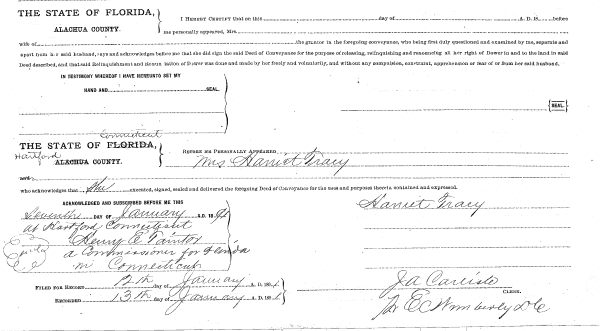 THE STATE OF FLORIDA,
ALACHUA COUNTY.
I HEREBY CERTIFY that on this day of A. D. 18 before
me personally appeared, Mrs.
wife of the grantor in the foregoing conveyance, who being first duly questioned and examined by me, separate and
apart from her said husband, says and acknowledges before me that she did sign the said Deed of Conveyance for the purpose of releasing, relinquishing and renouncing all her right of Dower in and to the land in said
Deed described, and that said Relinquishment and Renunciation of Dower was done and made by her freely and voluntarily, and without any compulsion, constraint, apprehension or fear of or from her said husband.
IN TESTIMONY WHEREOF I HAVE HEREUNTO SET MY
HAND AND SEAL.
SEAL.
Connecticut
THE STATE OF FLORIDA,
Hartford
ALACHUA COUNTY.
BEFORE ME PERSONALLY APPEARED
Mrs Harriet Tracy
who acknowledges that she executed, signed, sealed and delivered the foregoing Deed of Conveyance for the uses and purposes therein contained and expressed.
ACKNOWLEDGED AND SUBSCRIBED BEFORE ME THIS
Seventh DAY OF January A. D. 18
Harriet Tracy
at Hartford Connecticut
Henry E Taintor
a Commissioner for Florida
in Connecticut
FILED FOR RECORD 12th day of January A. D. 18
RECORDED 13th day of January A. D. 18
J A Carlisle
CLERK.
Wimberly D C